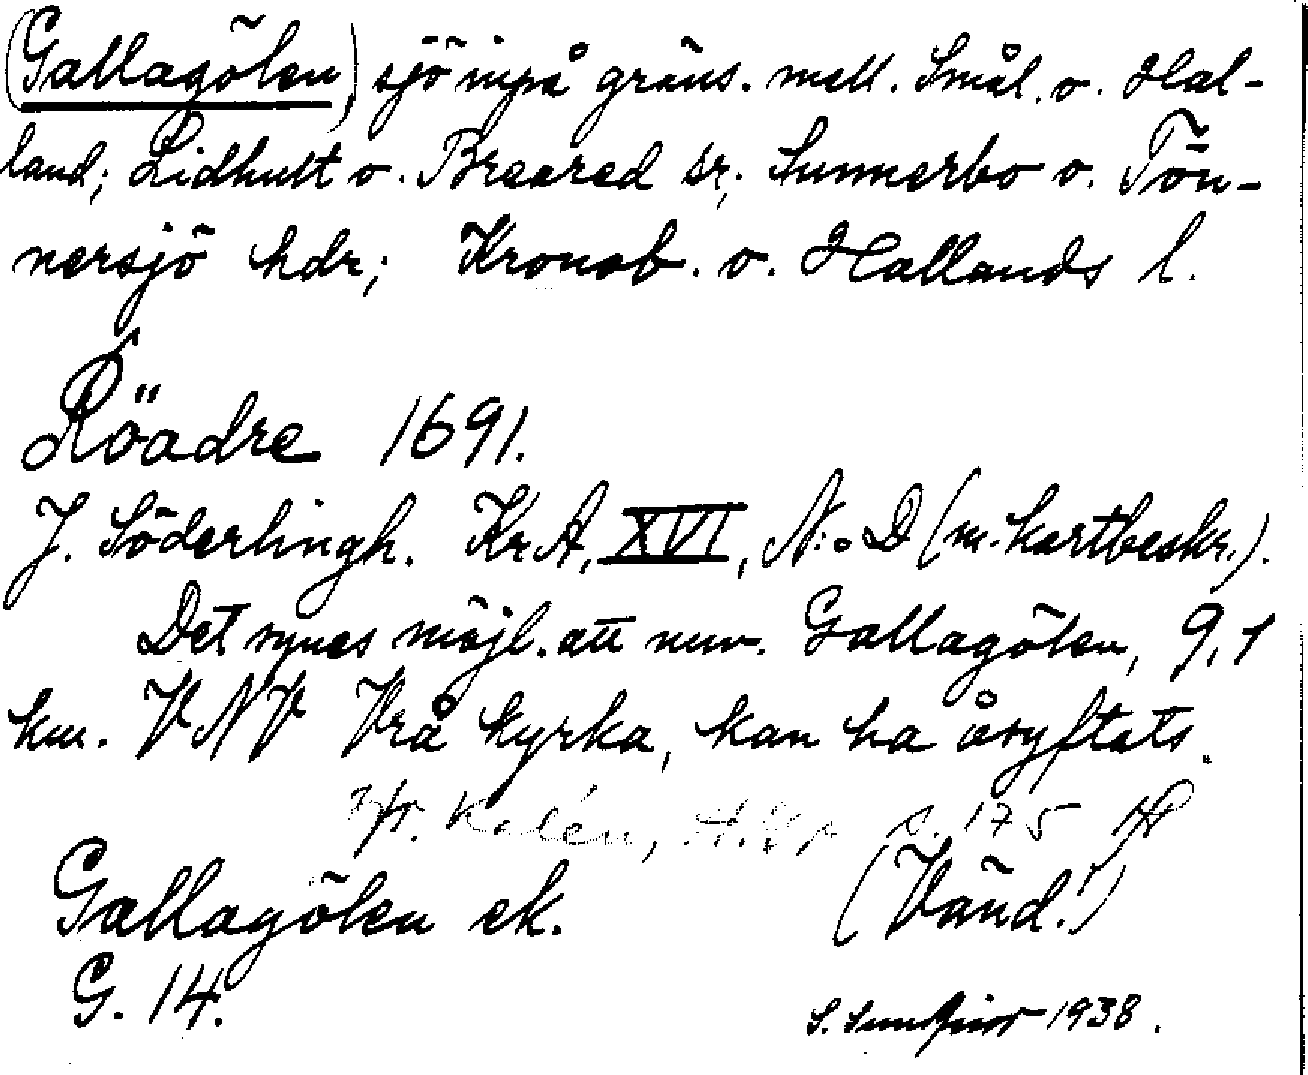 (Gallagölen), sjö inpå gräns. mell. Smål. o. Hal-
land; Lidhult o. Breared sr; Sunnerbo o. Tön-
nersjö hdr; Kronob. o. Hallands l.
Röadre 1691.
J. Söderlingh. Kr.A, XVI, N:o D (m. kartbeskr.).
Det synes möjl. att nuv. Gallagölen, 9,1
km. VNV Vrå kyrka, kan ha åsyftats.
Jfr. Kalén, s. 175
Gallagölen ek. (Vänd!)
G. 14.
S. 1938.